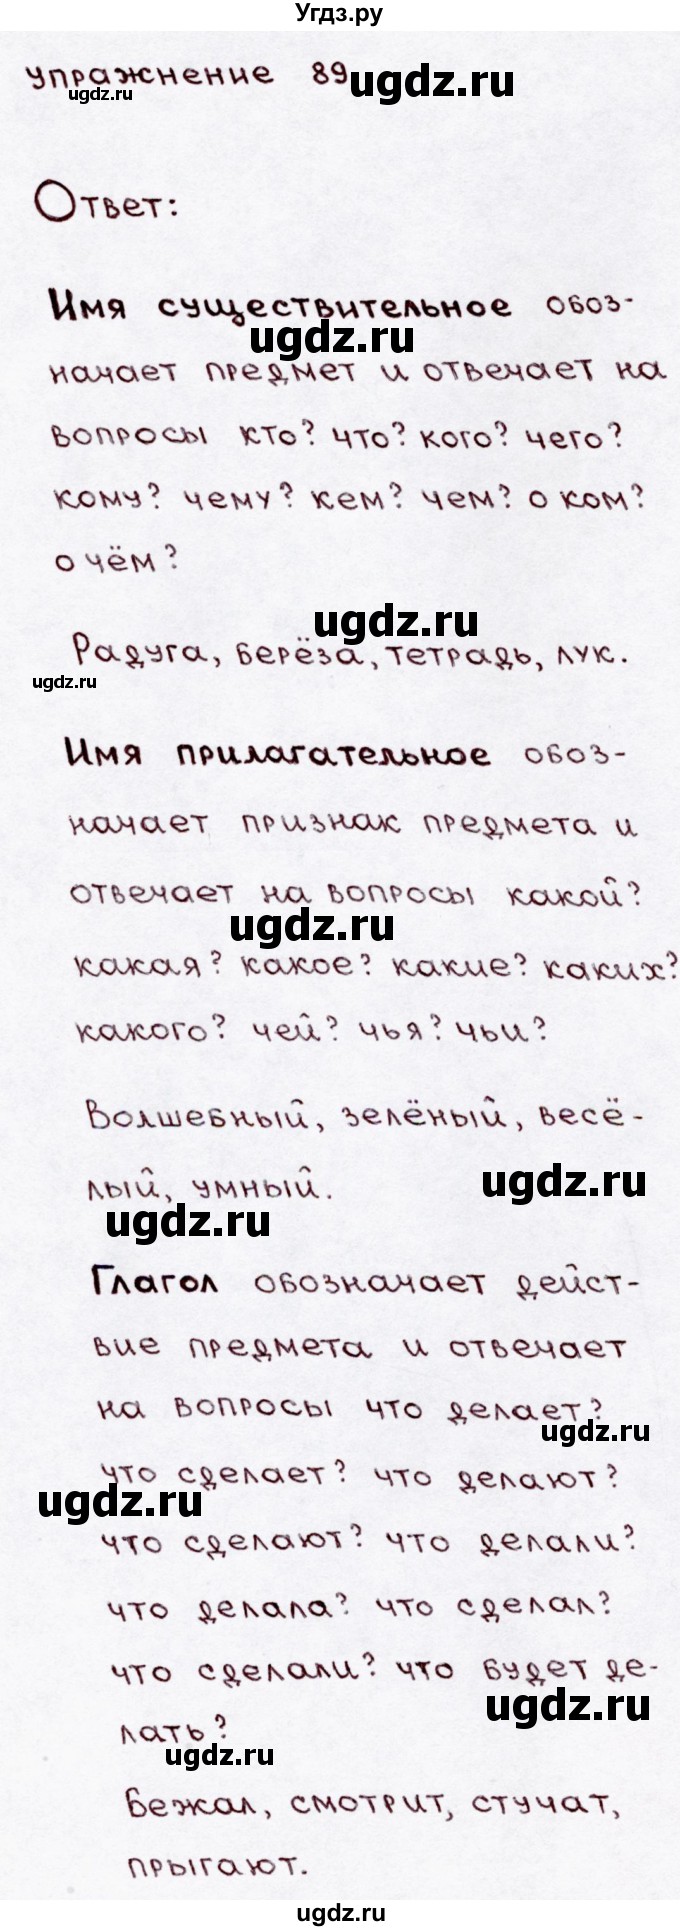 Угдз.ру
упражнение 89
ugdz.ru
ugdz.ru
Ответ:
Имя существительное обоз-
ugdz.ru
начает предмет и отвечает на
вопросы кто? что? кого? чего?
кому? чему? кем? чем? о ком?
о чём?
ugdz.ru
Радуга, берёза, тетрадь, лук.
ugdz.ru
Имя прилагательное обоз-
начает признак предмета и
отвечает на вопросы какой?
ugdz.ru
какая? какое? какие? каких?
какого? чей? чья? чьи?
Волшебный, зелёный, весё-
ugdz.ru
лый, умный.
ugdz.ru
Глагол обозначает дейст-
вие предмета и отвечает
на вопросы что делает?
ugdz.ru
что сделает? что делают?
ugdz.ru
что сделают? что делали?
что делала? что сделал?
что сделали? что будет де-
ugdz.ru
лать?
ugdz.ru
Бежал, смотрит, стучат,
прыгают.
ugdz.ru